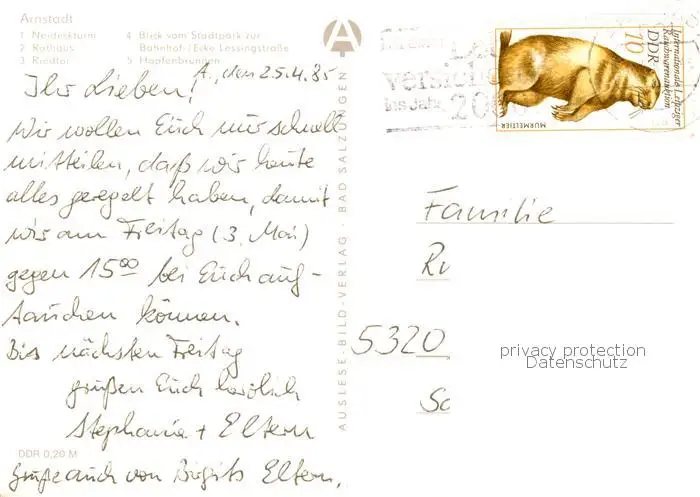 Arnstadt
1 Neideckturm
2 Rathaus
3 Riedtor
4 Blick vom Stadtpark zur
Bahnhof-/Ecke Lessingstraße
5 Hopfenbrunnen
A., den 25.4.85
Ihr Lieben!
Wir wollen Euch nur schnell
mitteilen, daß wir heute
alles geregelt haben, damit
wir am Freitag (3. Mai)
gegen 15⁰⁰ bei Euch auf-
tauchen können.
Bis nächsten Freitag
grüßen Euch herzlich
Stephanie + Eltern
Grüße auch von Birgits Eltern.
DDR 0,20 M
AUSLESE-BILD-VERLAG · BAD SALZUNGEN
versich
ins Jahr
200
Internationale Leipziger
Rauchwarenauktion
DDR
10
MURMELTIER
Familie
Ru
5320
Sc
privacy protection
Datenschutz